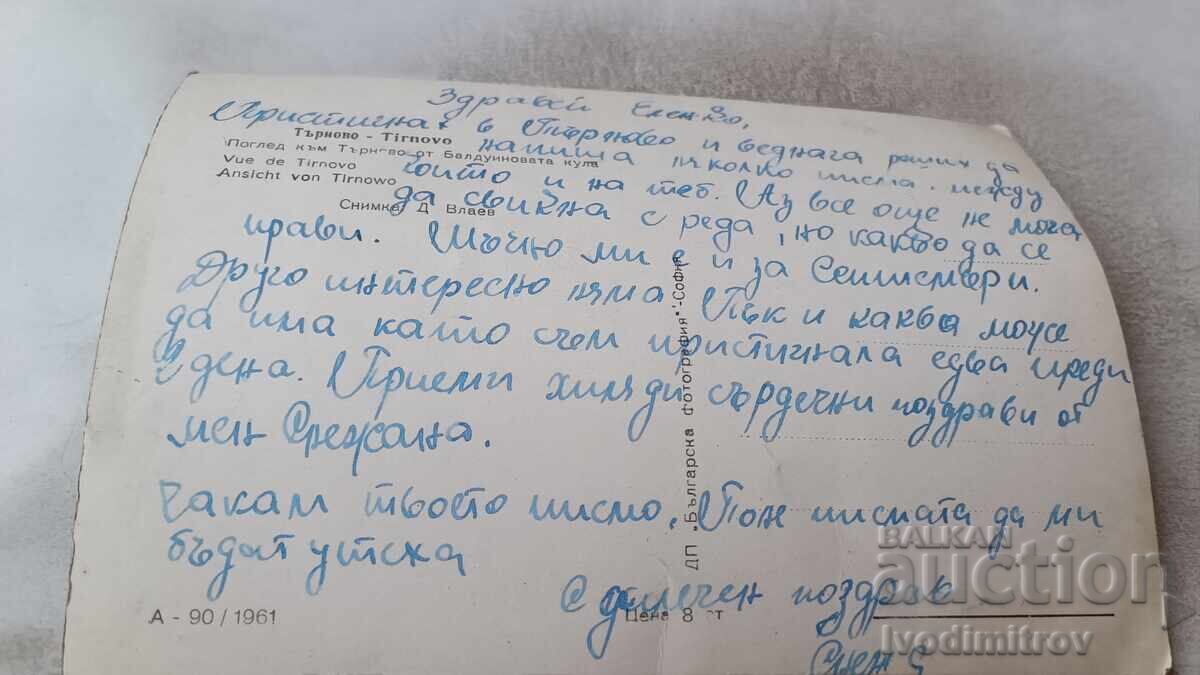 Здравей Еленко,
Пристигнах в Търново и веднага реших да
напиша няколко писма, между
които и на теб. Аз все още не мога
да свикна с реда, но какво да се
прави. Мъчно ми е и за Септември.
Друго интересно няма. Пък и какво може
да има като съм пристигнала едва преди
2 дена. Приеми хиляди сърдечни поздрави от
мен Снежана.
Чакам твоето писмо. Поне писмата да ми
бъдат утеха
С сърдечен поздрав
Снеж
Търново - Tirnovo
Поглед към Търново от Балдуиновата кула
Vue de Tirnovo
Ansicht von Tirnowo
Снимка Д Влаев
ДП „Българска фотография" - София
А - 90 / 1961
Цена 8 ст
БАЛКАН
auction
Ivodimitrov